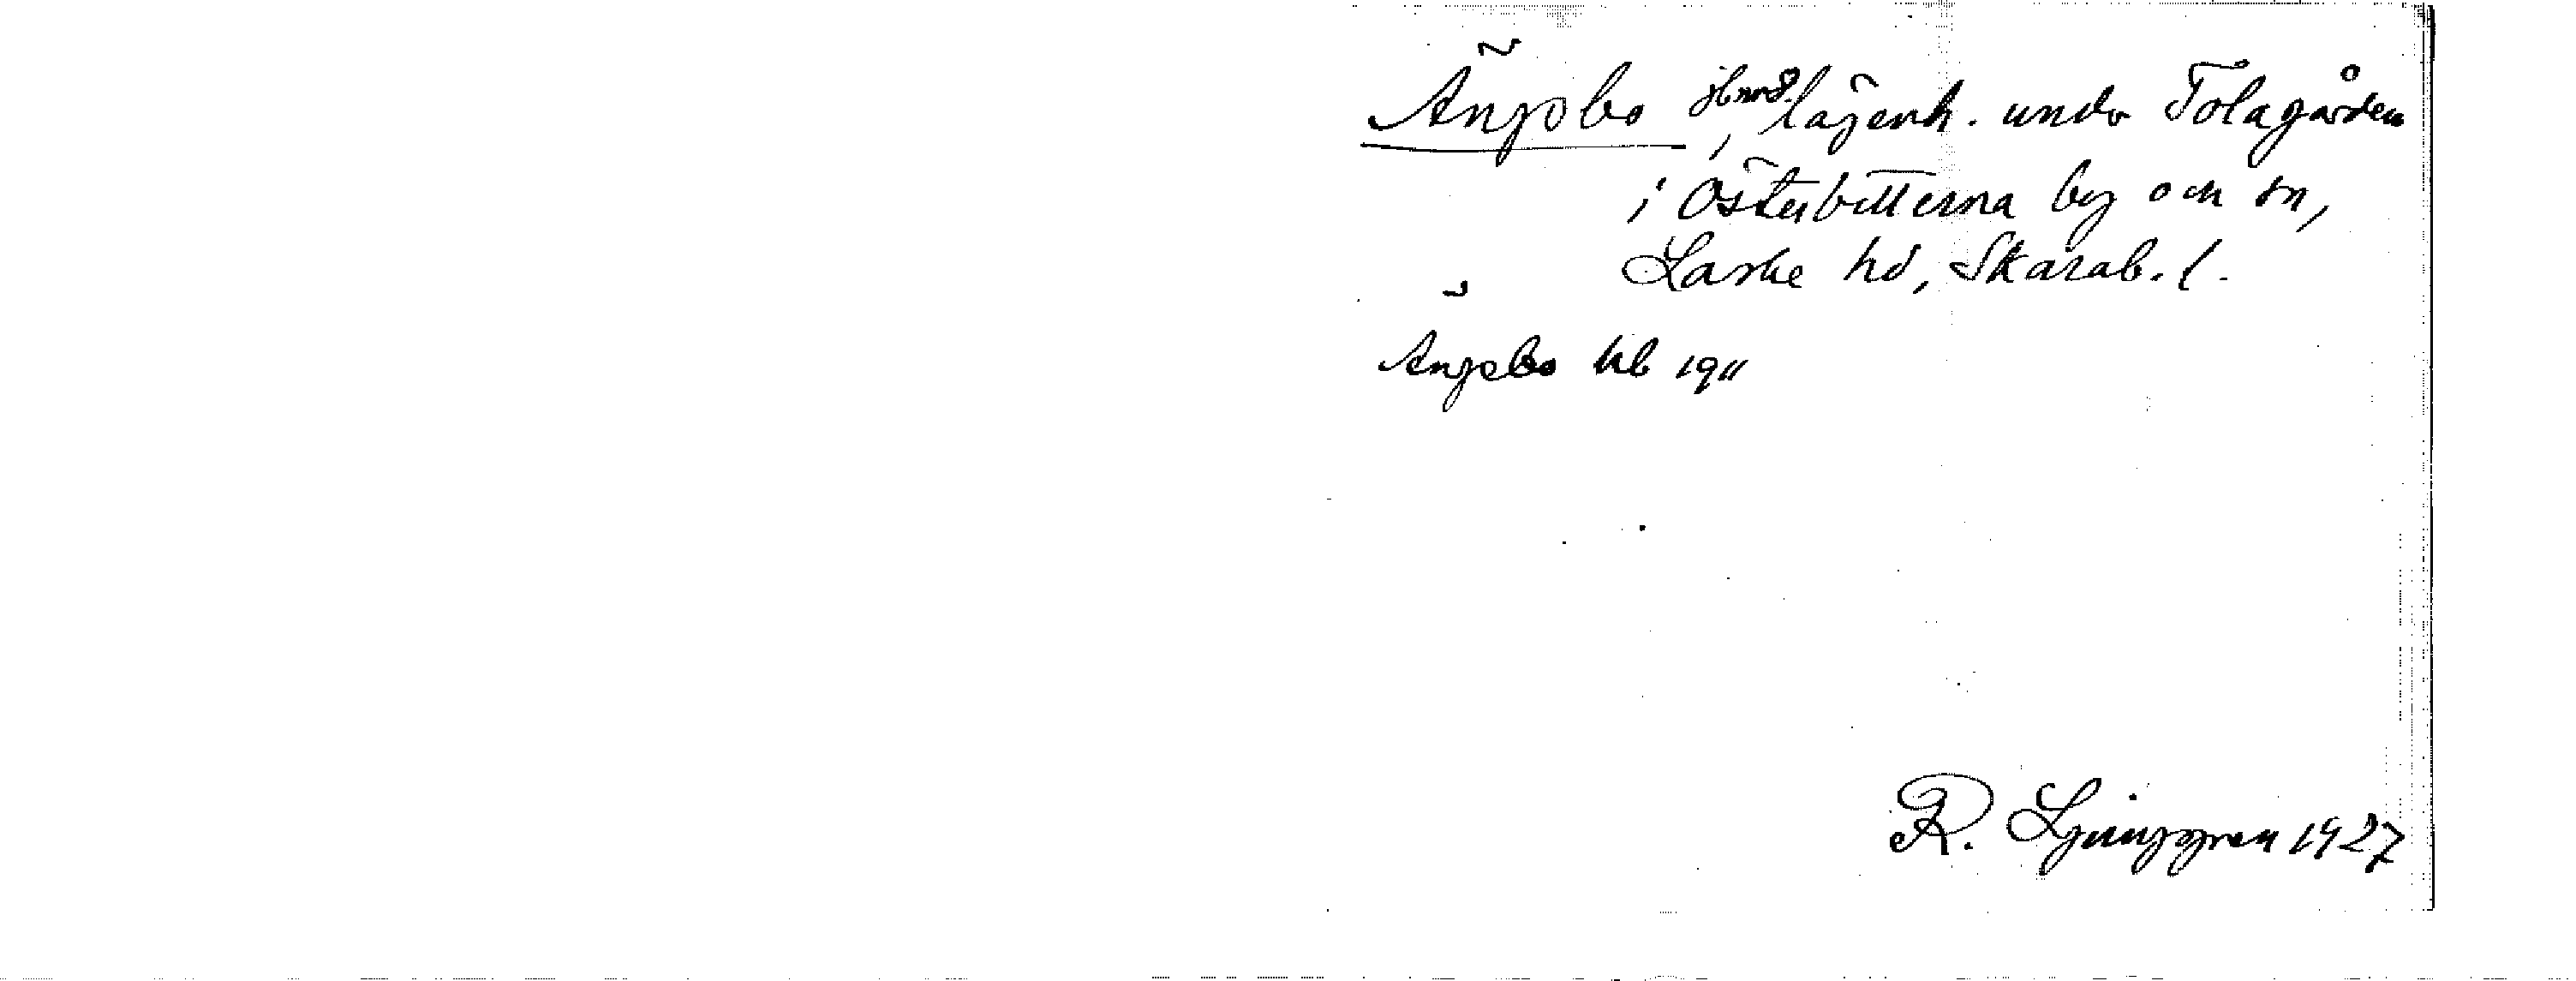 Ängobo jbnr 8, lägenh. under Tolagården
i Österbitterna by och sn,
Laske hd, Skarab. l.
Ängobo kb 1911
R. Ljunggren 1927